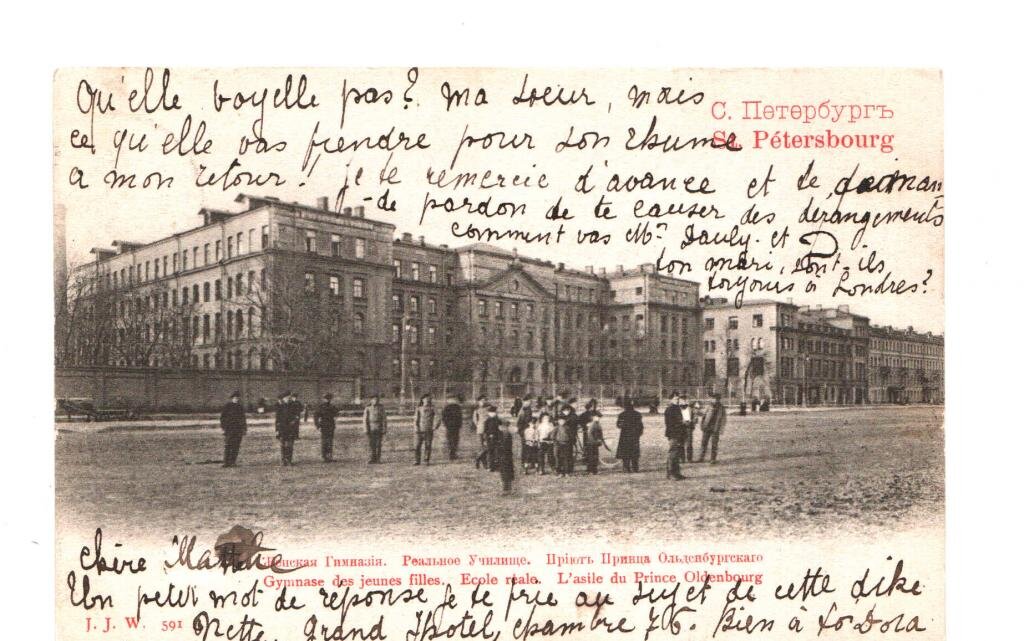 Qu'elle voyelle pas? ma soeur, mais
ce qu'elle vas prendre pour son rhume
a mon retour! je te remercie d'avance et te deman
-de pardon de te causer des dérangements
comment vas Me et
son mari, sont ils
toujours à Londres?
С. Петербургъ
St. Pétersbourg
chère Marthe
Женская Гимназія. Реальное Училище. Пріютъ Принца Ольденбургскаго
Gymnase des jeunes filles. Ecole reale. L'asile du Prince Oldenbourg
Un petit mot de réponse je te prie au sujet de cette dike
J. J. W. 591
Nette, Grand Hotel, chambre 76. Bien à to Dora